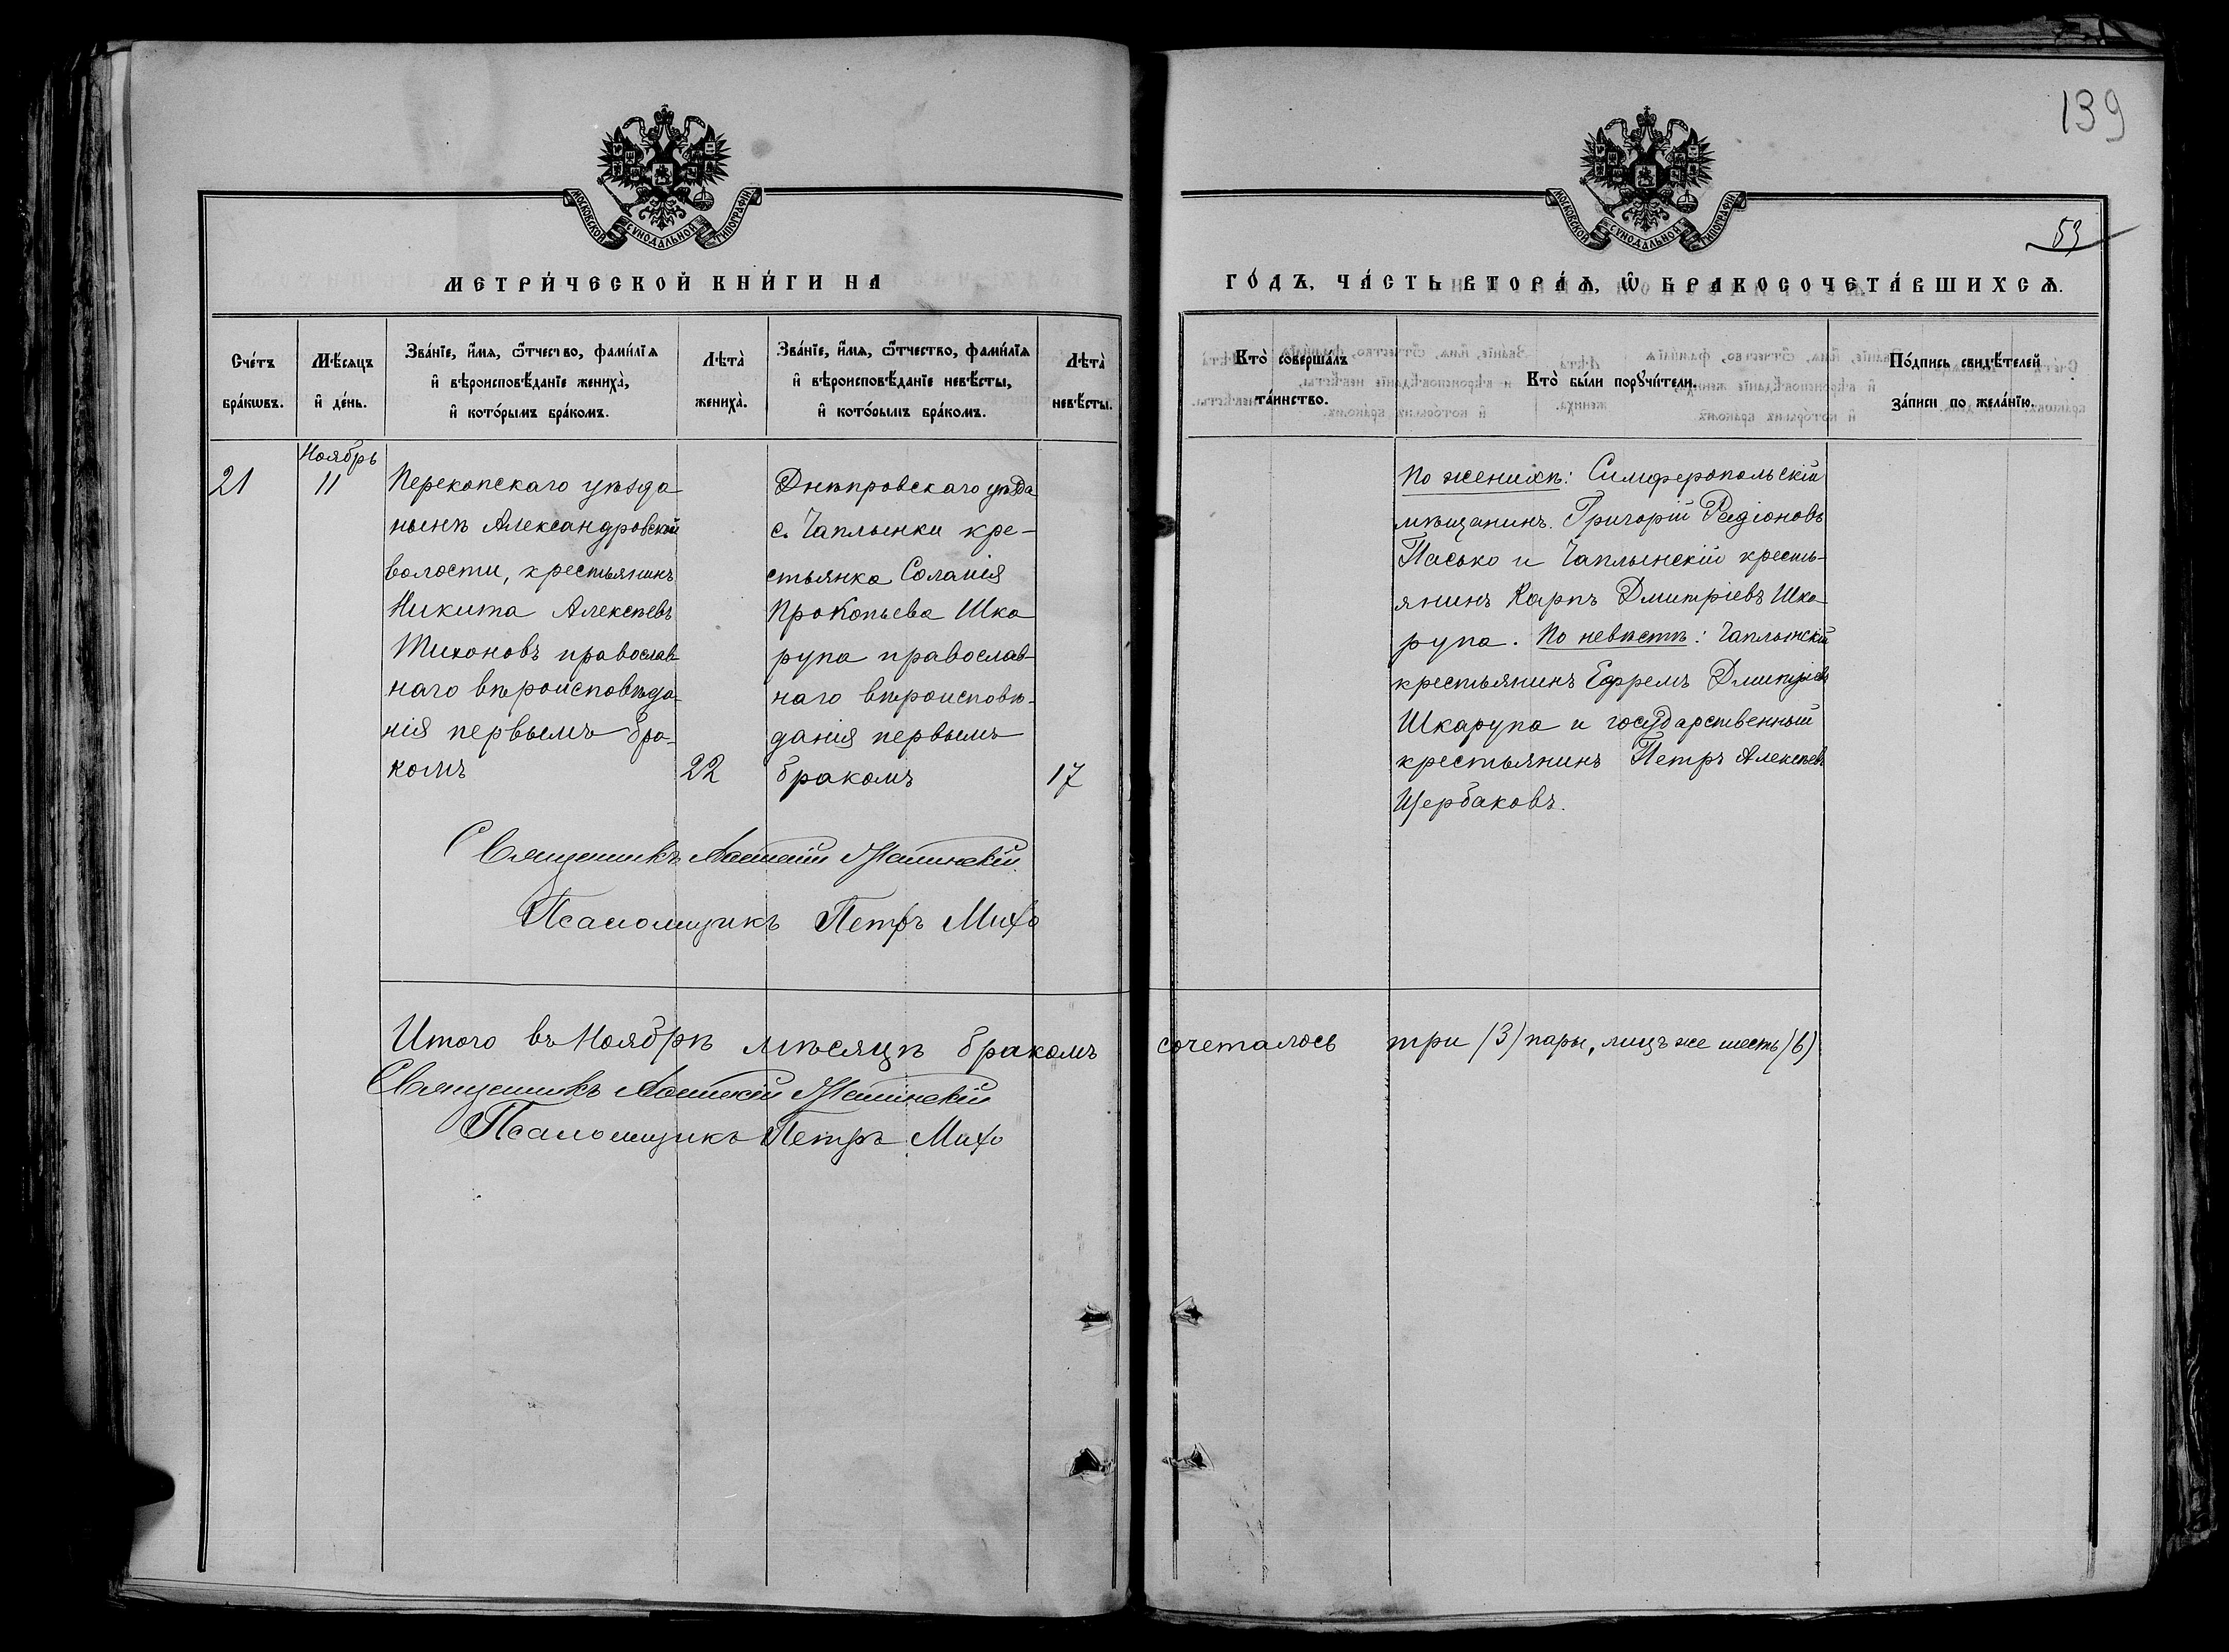 139
МОСКОВСКОЙ СУНОДАЛЬНОЙ ТИПОГРАФІИ
МОСКОВСКОЙ СУНОДАЛЬНОЙ ТИПОГРАФІИ
53
МЕТРИ́ЧЕСКОЙ КНИ́ГИ НА
ГО́ДЪ, ЧА́СТЬ ВТОРА́Ѧ, Ѿ БРАКОСОЧЕТА́ВШИХСѦ.
Сче́тъ
бра́кѡвъ.
Мѣ́сяцъ
и҆ де́нь.
Зва́нїе, и҆́мѧ, ѻ҆́тчество, фами́лїѧ
и҆ вѣроисповѣ́данїе женихà,
и҆ кото́рымъ бра́комъ.
Лѣтà
женихà.
Зва́нїе, и҆́мѧ, ѻ҆́тчество, фами́лїѧ
и҆ вѣроисповѣ́данїе невѣ́сты,
и҆ кото́рымъ бра́комъ.
Лѣтà
невѣ́сты.
Кто̀ соверша́лъ
та́инство.
Кто̀ бы́ли порꙋчи́тели.
По́дпись свидѣ́телей
за́писи по жела́нїю.
21
Ноябрь
11
Перекопскаго уѣзда
нынѣ Александровской
волости, крестьянинъ
Никита Алексѣевъ
Тихоновъ православ-
наго вѣроисповѣда-
нія первымъ бра-
комъ
22
Днѣпровскаго уѣзда
с. Чаплынки кре-
стьянка Соланія
Прокопьева Шка
рупа православ-
наго вѣроисповѣ-
данія первымъ
бракомъ
17
По женихѣ: Симферопольскій
мѣщанинъ. Григорій Радіоновъ
Пасько и Чаплынскій кресть-
янинъ Карпъ Дмитріевъ Шка
рупа. По невѣстѣ: Чаплынскій
крестьянинъ Ефремъ Дмитріевъ
Шкарупа и государственный
крестьянинъ Петръ Алексѣевъ
Щербаковъ.
Священникъ
Псаломщикъ Петръ
Итого въ Ноябрѣ мѣсяцѣ бракомъ сочеталось три (3) пары, лицъ же шесть (6)
Священникъ
Псаломщикъ Петръ